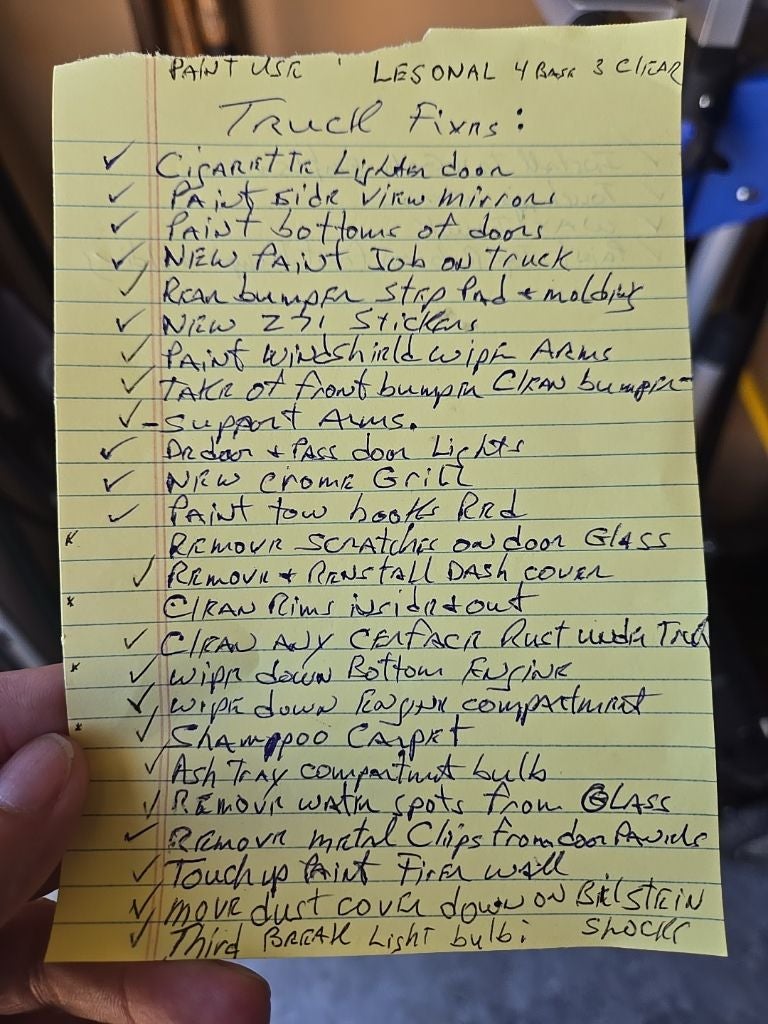 PAINT USE : LESONAL 4 BASE 3 CLEAR
Truck Fixns:
✓ CigARETTE Lighter door
✓ PAINT side view mirrors
✓ PAINT bottoms of doors
✓ NEW PAINT Job on truck
✓ REAR bumpER STEP PAd + molding
✓ NEW Z71 Stickers
✓ PAINT WINDShiEld wipE ARMS
✓ TAKE of front bumpER CLEAN bumpER-
✓ -Support ARMS.
✓ DR door + PASS door Lights
✓ NEW CromE Grill
✓ PAINT tow hooks REd
* REMOVE SCRATCHES on door GLASS
✓ REMOVE + REINSTALL DASH COVER
* CLEAN Rims insidE + out
✓ CLEAN ANY CERFACE Rust under
* ✓ WipE down Bottom ENGINE
✓ WIPE down ENGINE compARTMENT
* ✓ SHAMPPOO CARPET
✓ Ash TRAY compartmnt bulb
✓ REMOVE WATER spots from GLASS
✓ REMOVE METAL Clips from door PANELS
✓ Touch up PAINT FirEr wall
✓ MOVE dust COVER down ON BILSTEIN
SHOCKS
✓ Third BREAK Light bulb: